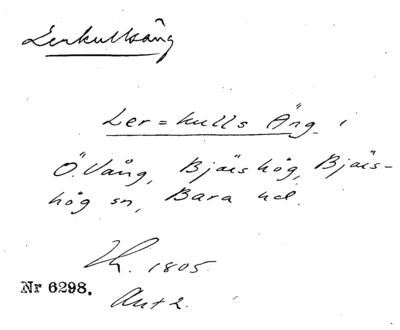 Lerkullsäng
Ler=kulls Äng i
Ö. Vång, Bjäishög, Bjäis-
hög sn, Bara hd.
1805.
Nr 6298.